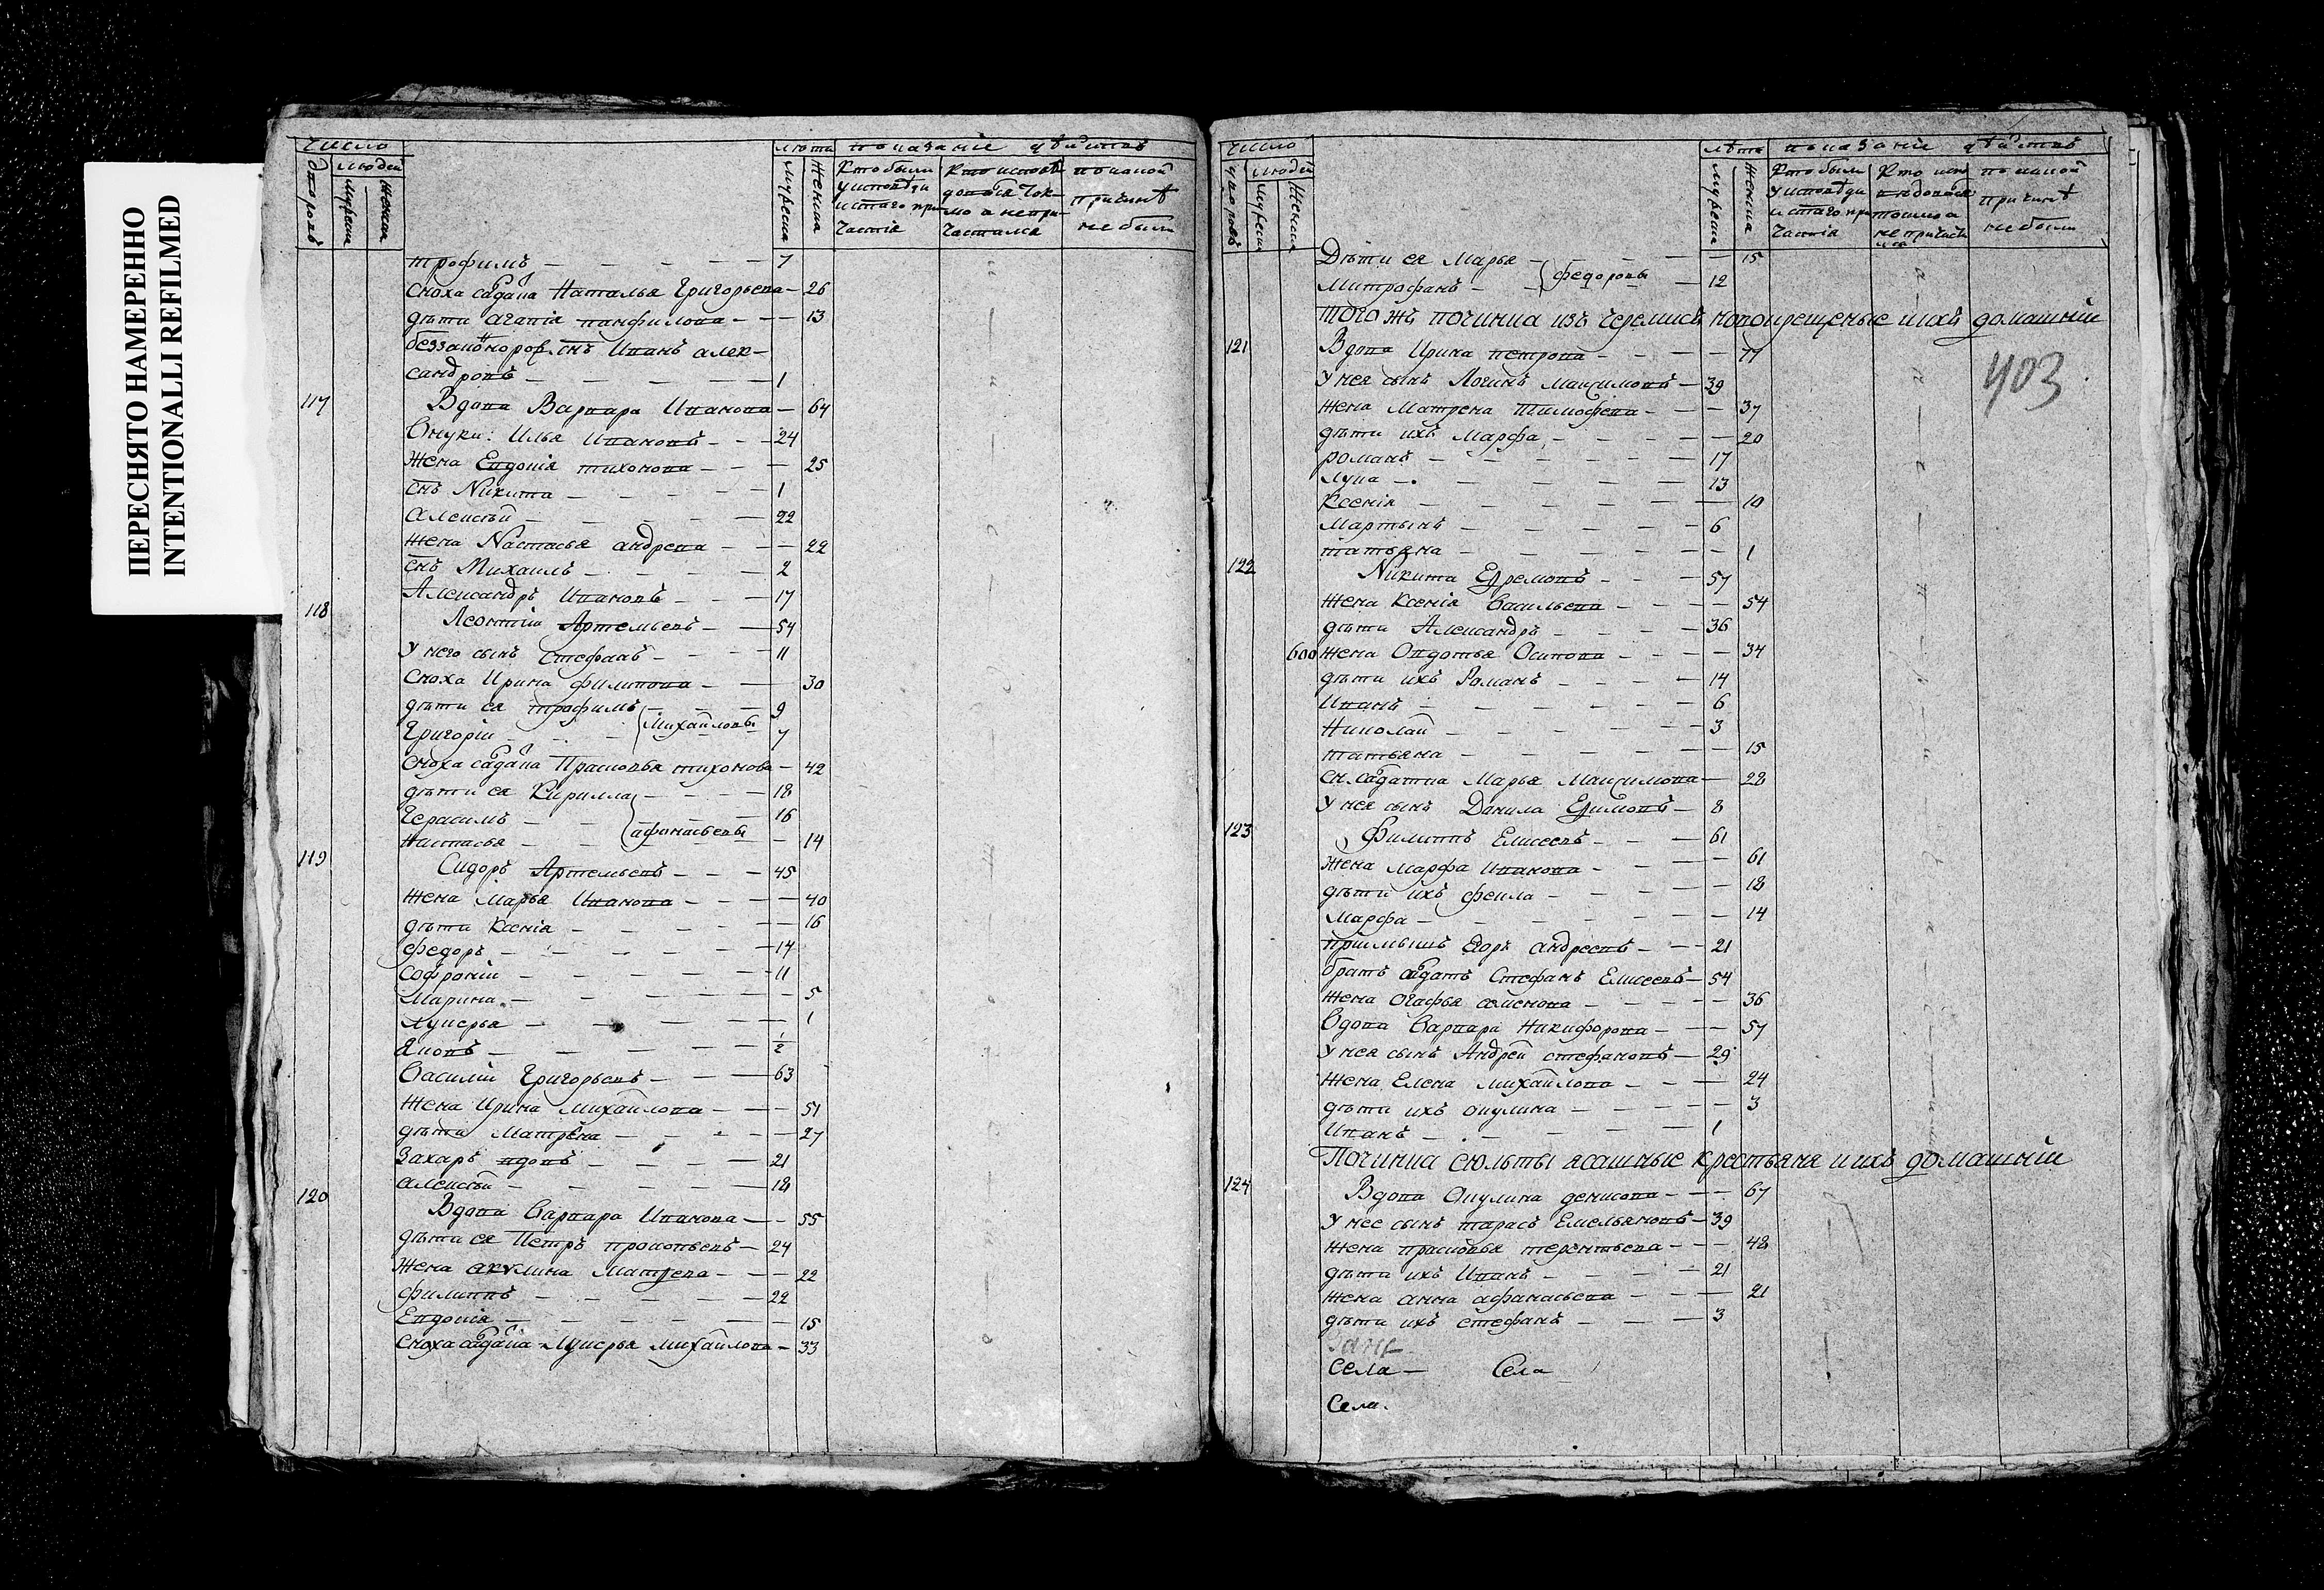 ПЕРЕСНЯТО НАМЕРЕННО
INTENTIONALLI REFILMED
число
людей
дворовъ
мужеска
женска
лѣта
мужеска
женска
показаніе дѣйства
Кто были у исповѣди и стаго причастія
Кто исповѣдовался токмо а не причастился
по какой причинѣ не были
трофимъ 7
сноха Наталья Григорьева 26
дѣти агапія панфилова 13
снъ Иванъ александровъ 1
117 Вдова Варвара Иванова 64
внуки: Илья Ивановъ 24
жена Евдокія тихонова 25
снъ Никита 1
алексѣй 22
жена Настасья андреева 22
снъ Михаилъ 2
Александръ Ивановъ 17
118 Леонтій Артемьевъ 54
у него сынъ стефанъ 11
сноха Ирина филипова 30
дѣти ея трофимъ 9
Григорій } Михайловы 7
сноха Прасковья тихонова 42
дѣти ея Кирилла 18
Герасимъ 16
Настасья } афонасьевы 14
119 Сидоръ Артемьевъ 45
жена Марья Иванова 40
дѣти Ксенія 16
федоръ 14
софроній 11
Марина 5
лукерья 1
Яковъ 1/2
Василій Григорьевъ 63
жена Ирина михайлова 51
дѣти Матрена 27
Захаръ вдовъ 21
алексѣй 18
120 Вдова Варвара Иванова 55
дѣти ея Петръ прокопьевъ 24
жена акулина Матвеева 22
филиппъ 22
Евдокія 15
сноха Лукерья михайлова 33
число
людей
дворовъ
мужеска
женска
лѣта
мужеска
женска
показаніе дѣйства
Кто были у исповѣди и стаго причастія
по какой причинѣ не были
Дѣти ея Марья 15
Митрофанъ } федоровы 12
того жъ починка изъ черемисъ новокрещеные и ихъ домашніи
403
121 Вдова Ирина петрова 77
у нея сынъ Логинъ максимовъ 39
жена Матрена тимофеева 37
дѣти ихъ марфа 20
романъ 17
лука 13
Ксенія 10
мартынъ 6
татьяна 1
122 Никита Ефремовъ 57
жена Ксенія васильева 54
дѣти Александръ 36
600 жена Овдотья Осипова 34
дѣти ихъ Романъ 14
Иванъ 6
Николай 3
татьяна 15
Марья Максимова 28
у нея сынъ Данила Ефимовъ 8
123 филиппъ Елисеевъ 61
жена марфа иванова 61
дѣти ихъ фекла 18
марфа 14
андреевъ 21
братъ Стефанъ Елисеевъ 54
жена Огафья семенова 36
вдова варвара Никифорова 57
у нея сынъ Андрей стефановъ 29
жена Елена михайлова 24
дѣти ихъ окулина 3
Иванъ 1
Починка сюльты ясашные крестьяня и ихъ домашніи
124 Вдова Окулина денисова 67
у нее сынъ тарасъ Емельяновъ 39
жена прасковья терентьева 48
дѣти ихъ Иванъ 21
жена анна афанасьева 21
дѣти ихъ стефанъ 3
села Села
села.